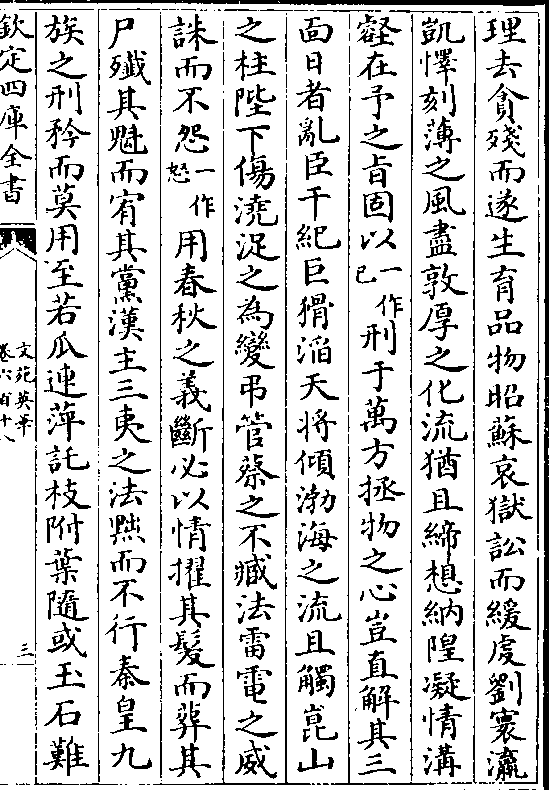 理去貪殘而遂生育品物昭蘇哀獄訟而緩虔劉寰瀛
凱懌刻薄之風盡敦厚之化流猶且締想納隍凝情溝
壑在予之㫖固以一作已刑于萬方拯物之心豈直解其三
面日者亂臣干紀巨猾滔天将傾渤海之流且觸崑山
之柱陛下傷澆浞之為變弔管蔡之不臧法雷電之威
誅而不怨一作怒用春秋之義斷必以情擢其髮而葬其
尸殱其魁而宥其黨漢主三夷之法㸃而不行秦皇九
族之刑矜而莫用至若瓜連萍託枝附葉隨或玉石難
欽定四庫全書
文苑英華
卷六百十八
三